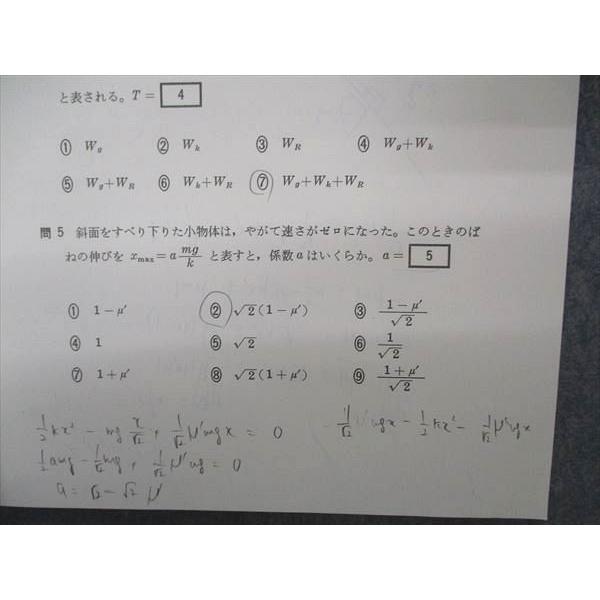 と表される。T = 4
① Wg ② Wk ③ WR ④ Wg+Wk
⑤ Wg+WR ⑥ Wk+WR ⑦ Wg+Wk+WR
問 5 斜面をすべり下りた小物体は，やがて速さがゼロになった。このときのば
ねの伸びを xmax = a mg/k と表すと，係数 a はいくらか。a = 5
① 1−μ′ ② √2(1−μ′) ③ (1−μ′)/√2
④ 1 ⑤ √2 ⑥ 1/√2
⑦ 1+μ′ ⑧ √2(1+μ′) ⑨ (1+μ′)/√2
1/2 kx² − mg x/√2 + 1/√2 μ′mgx = 0
1/2 amg − 1/√2 mg + 1/√2 μ′mg = 0
a = √2 − √2 μ′